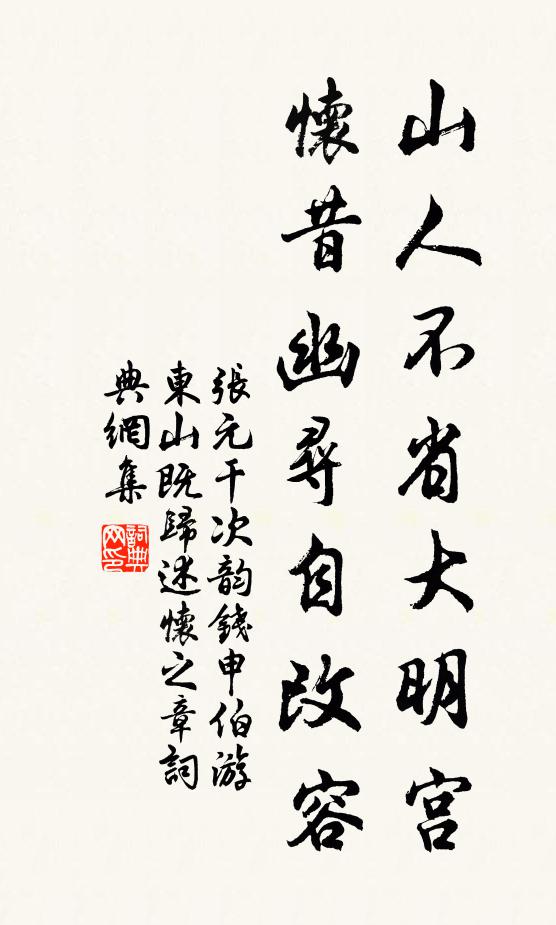 山人不省大明宫
懷昔幽尋自改容
張元干次韵錢申伯游
東山既歸述懷之章詞
典網集
詞典网印